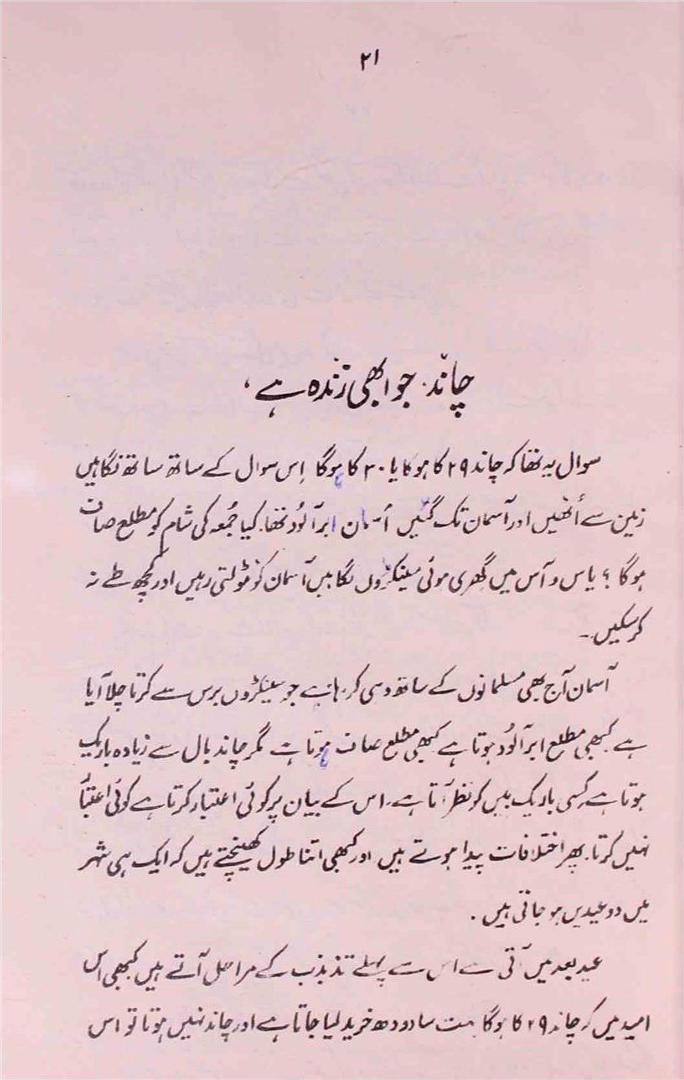 ۲۱
چاند۔ جو ابھی زندہ ہے،
سوال یہ تھا کہ چاند ۲۹ کا ہوگا یا ۳۰ کا ہوگا اِس سوال کے ساتھ ساتھ نگاہیں
زمین سے اُٹھیں اور آسمان تک گئیں آسمان ابر آلود تھا۔ کیا جُمعہ کی شام کو مطلع صاف
ہوگا؟ یاس و آس میں گھری ہوئی سینکڑوں نگاہیں آسمان کو ٹٹولتی رہیں اور کچھ طے نہ
کرسکیں۔
آسمان آج بھی مسلمانوں کے ساتھ وہی کر رہا ہے جو سینکڑوں برس سے کرتا چلا آیا
ہے کبھی مطلع ابر آلوُد ہوتا ہے کبھی مطلع صاف ہوتا ہے مگر چاند بال سے زیادہ باریک
ہوتا ہے کسی باریک بیں کو نظر آتا ہے۔ اس کے بیان پر کوئی اعتبار کرتا ہے کوئی اعتبار
نہیں کرتا۔ پھر اختلافات پیدا ہوتے ہیں اور کبھی اتنا طول کھینچتے ہیں کہ ایک ہی شہر
میں دو عیدیں ہو جاتی ہیں۔
عید بعد میں آتی ہے اس سے پہلے تذبذب کے مراحل آتے ہیں کبھی اس
امید میں کہ چاند ۲۹ کا ہوگا بہت سا دودھ خرید لیا جاتا ہے اور چاند نہیں ہوتا تو اس